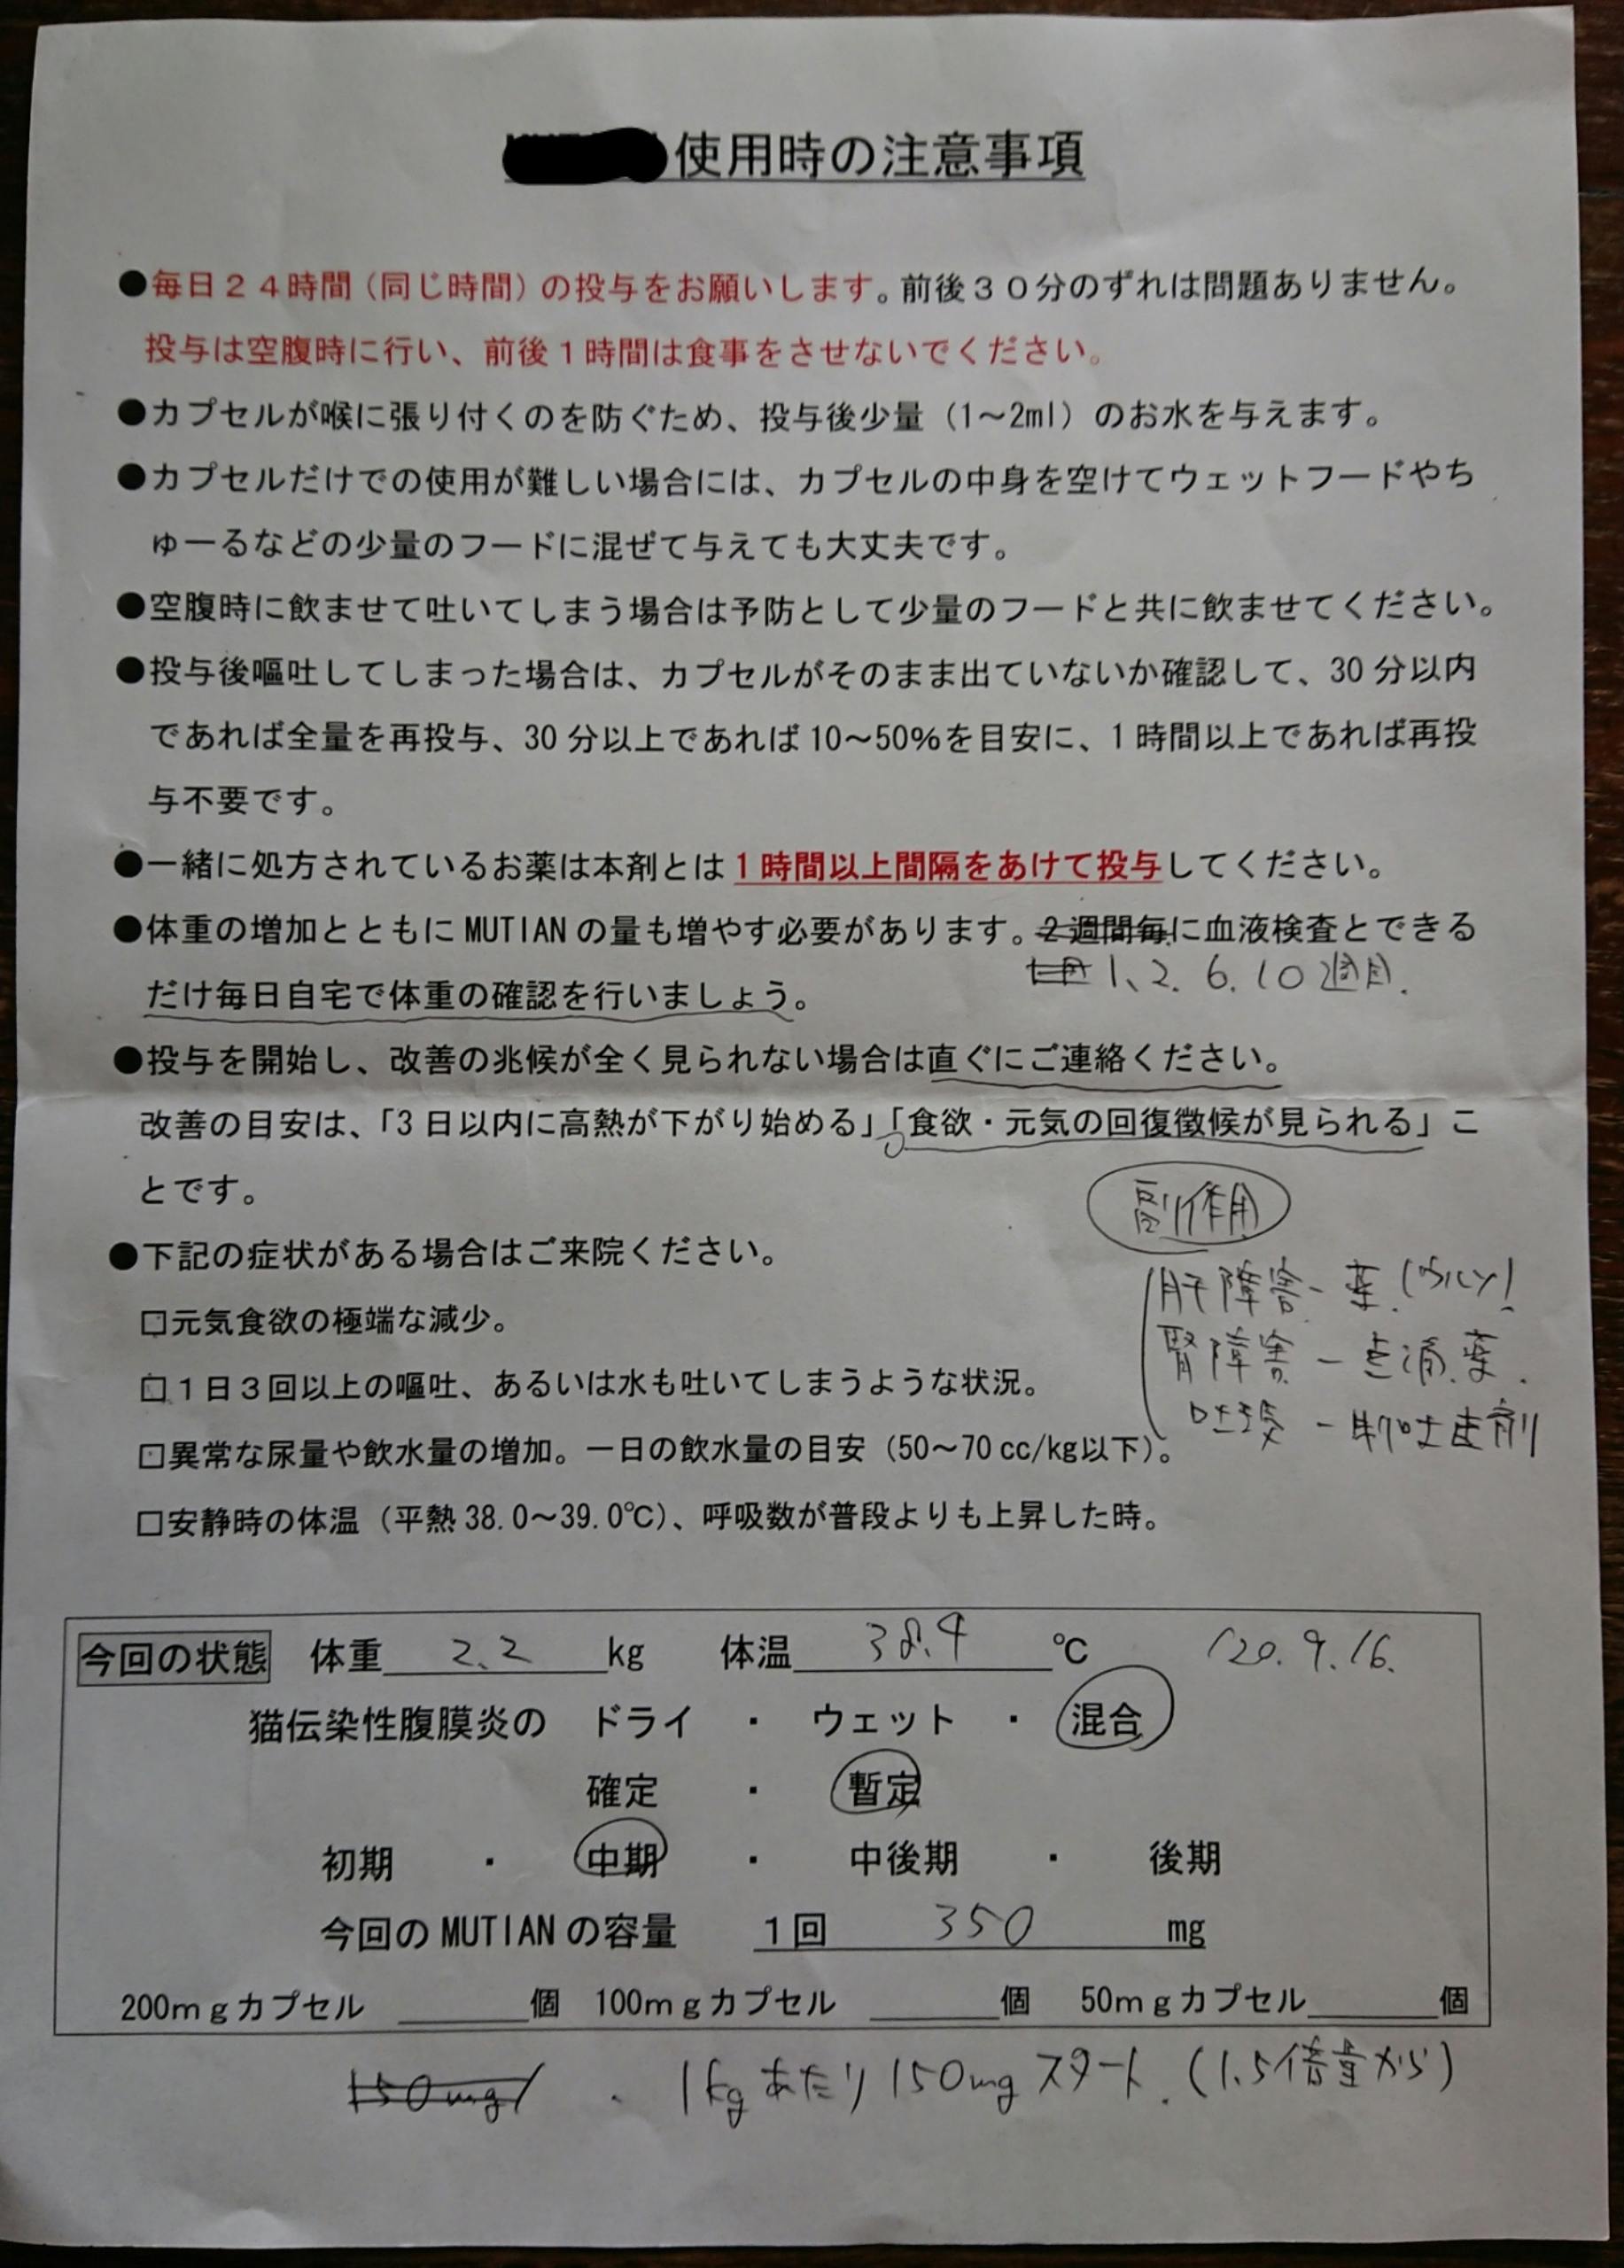 使用時の注意事項
●毎日２４時間（同じ時間）の投与をお願いします。前後３０分のずれは問題ありません。
投与は空腹時に行い、前後１時間は食事をさせないでください。
●カプセルが喉に張り付くのを防ぐため、投与後少量（1～2ml）のお水を与えます。
●カプセルだけでの使用が難しい場合には、カプセルの中身を空けてウェットフードやち
ゅーるなどの少量のフードに混ぜて与えても大丈夫です。
●空腹時に飲ませて吐いてしまう場合は予防として少量のフードと共に飲ませてください。
●投与後嘔吐してしまった場合は、カプセルがそのまま出ていないか確認して、30 分以内
であれば全量を再投与、30 分以上であれば 10～50%を目安に、1 時間以上であれば再投
与不要です。
●一緒に処方されているお薬は本剤とは１時間以上間隔をあけて投与してください。
●体重の増加とともに MUTIAN の量も増やす必要があります。２週間毎に血液検査とできる
1、2. 6. 10週目.
だけ毎日自宅で体重の確認を行いましょう。
●投与を開始し、改善の兆候が全く見られない場合は直ぐにご連絡ください。
改善の目安は、「3 日以内に高熱が下がり始める」「食欲・元気の回復徴候が見られる」こ
とです。
副作用
●下記の症状がある場合はご来院ください。
肝障害 - 薬.(ウルソ)
□元気食欲の極端な減少。
腎障害 - 点滴.薬.
□１日３回以上の嘔吐、あるいは水も吐いてしまうような状況。
- 制吐剤
□異常な尿量や飲水量の増加。一日の飲水量の目安（50～70 cc/kg以下）。
□安静時の体温（平熱 38.0～39.0℃）、呼吸数が普段よりも上昇した時。
今回の状態 体重 2.2 kg 体温 38.4 ℃ '20.9.16.
猫伝染性腹膜炎の ドライ ・ ウェット ・ 混合
確定 ・ 暫定
初期 ・ 中期 ・ 中後期 ・ 後期
今回の MUTIAN の容量 １回 350 mg
200ｍｇカプセル 個 100ｍｇカプセル 個 50ｍｇカプセル 個
150mg/ . 1kgあたり150mgスタート.(1.5倍量から)